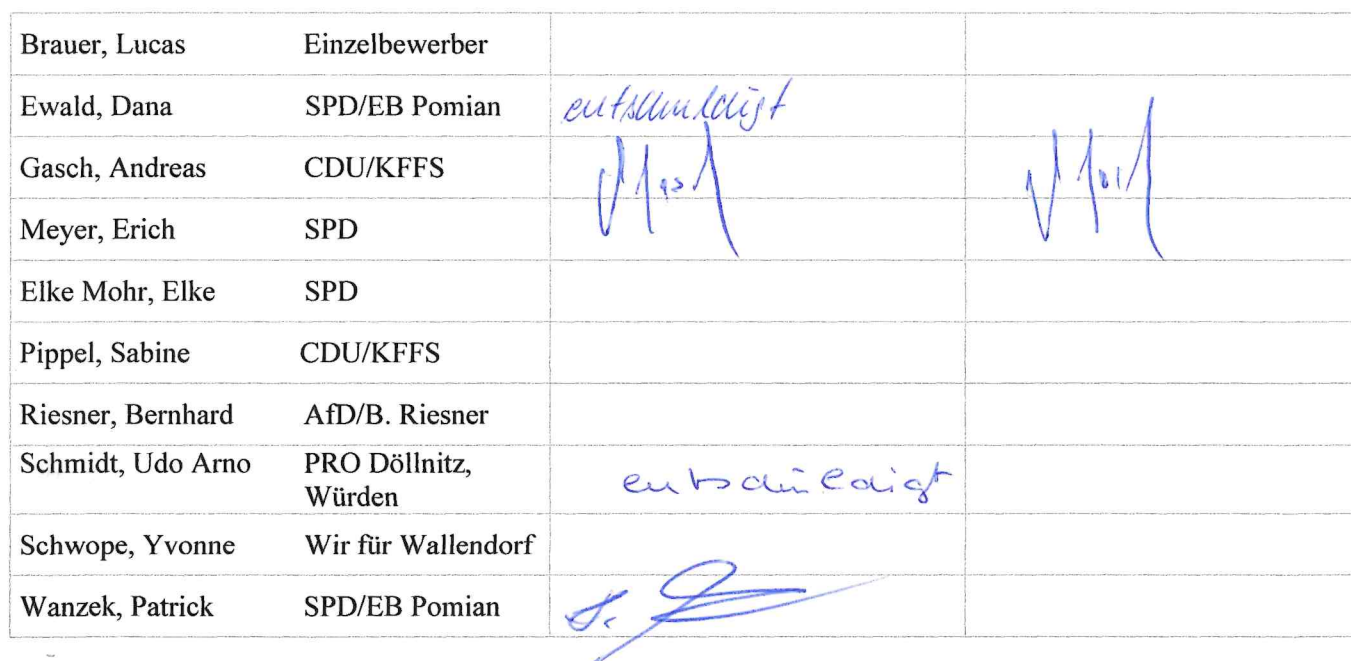 Brauer, Lucas Einzelbewerber
Ewald, Dana SPD/EB Pomian entschuldigt
Gasch, Andreas CDU/KFFS
Meyer, Erich SPD
Elke Mohr, Elke SPD
Pippel, Sabine CDU/KFFS
Riesner, Bernhard AfD/B. Riesner
Schmidt, Udo Arno PRO Döllnitz,
Würden entschuldigt
Schwope, Yvonne Wir für Wallendorf
Wanzek, Patrick SPD/EB Pomian